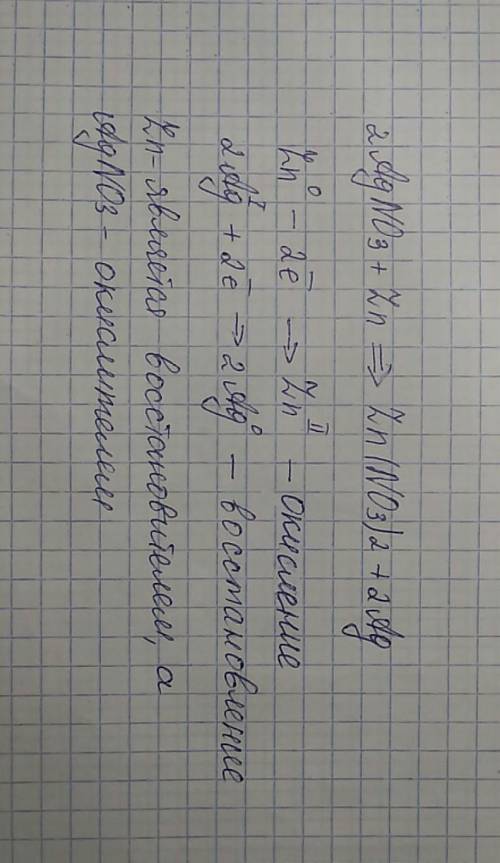 2AgNO3 + Zn ⇒ Zn(NO3)2 + 2Ag
Zn⁰ - 2ē → Znᴵᴵ - окисление
2Agᴵ + 2ē → 2Ag⁰ - восстановление
Zn - является восстановителем, а
AgNO3 - окислителем